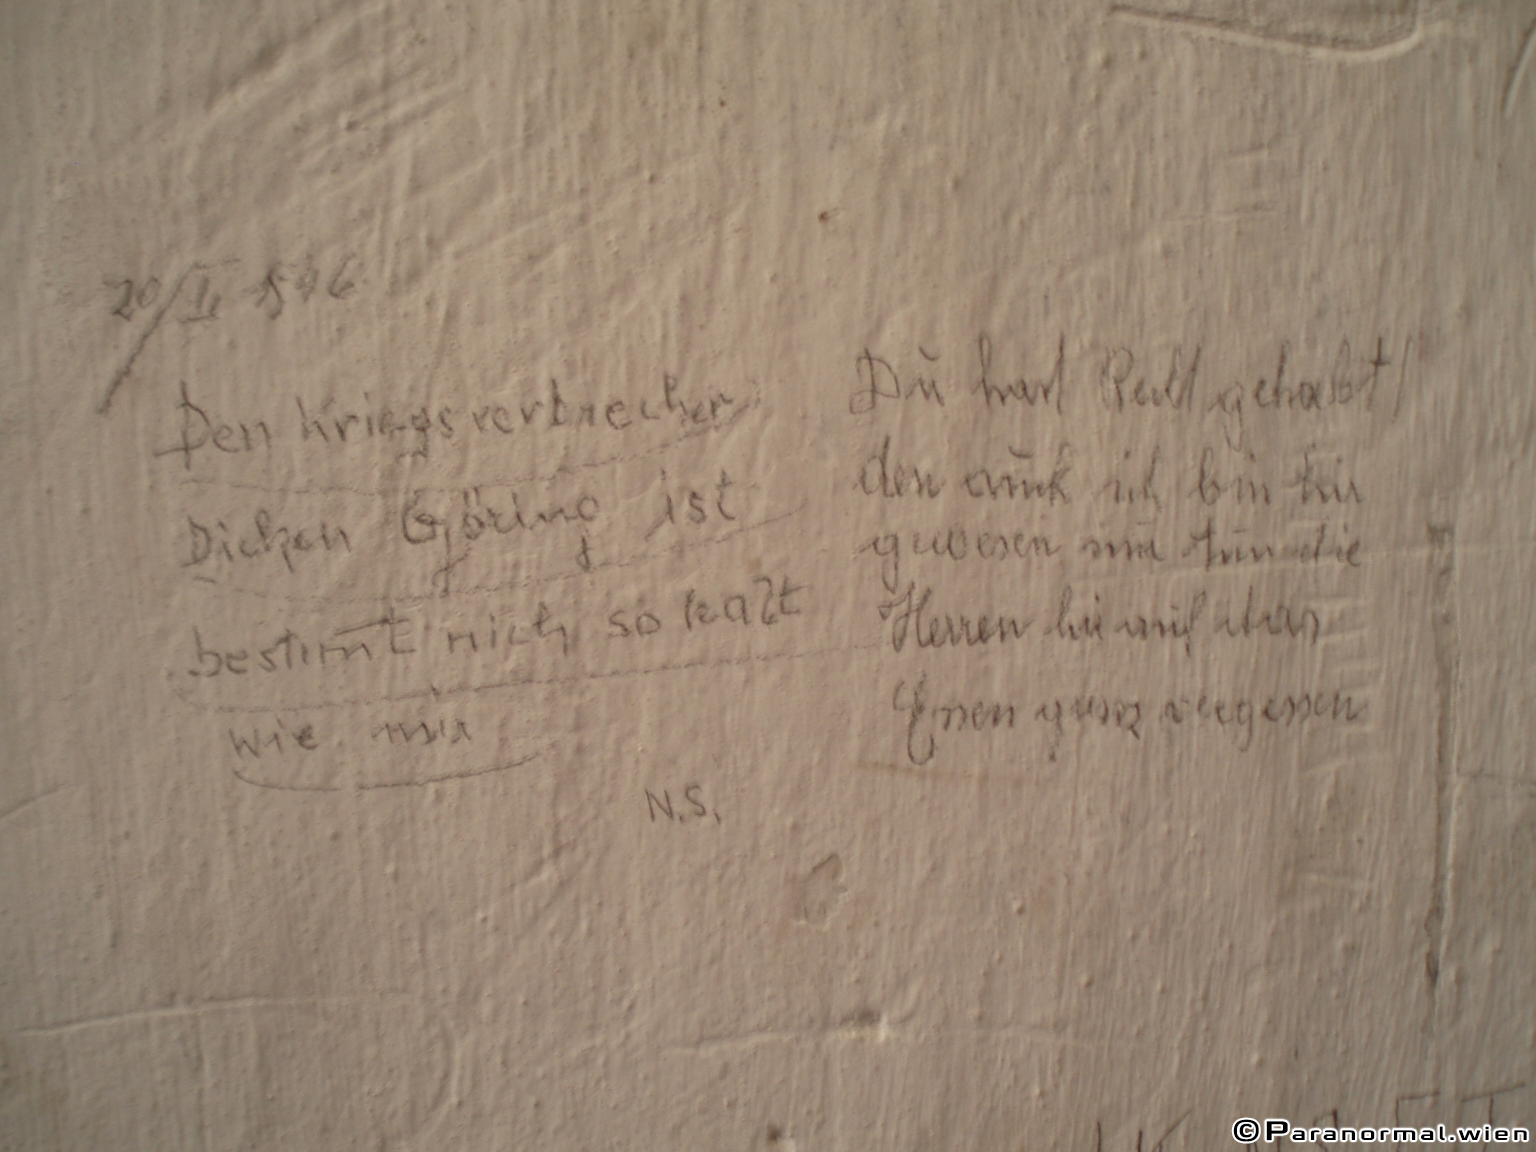 20/I. 1946
Den Kriegsverbrecher
Dicken Göring ist
bestimt nich so kalt
wie mir
N.S.
Du hast Recht gehabt!
den auch ich bin hir
gewesen nur tun die
Herren hir auf das
Essen ganz vergessen
©Paranormal.wien